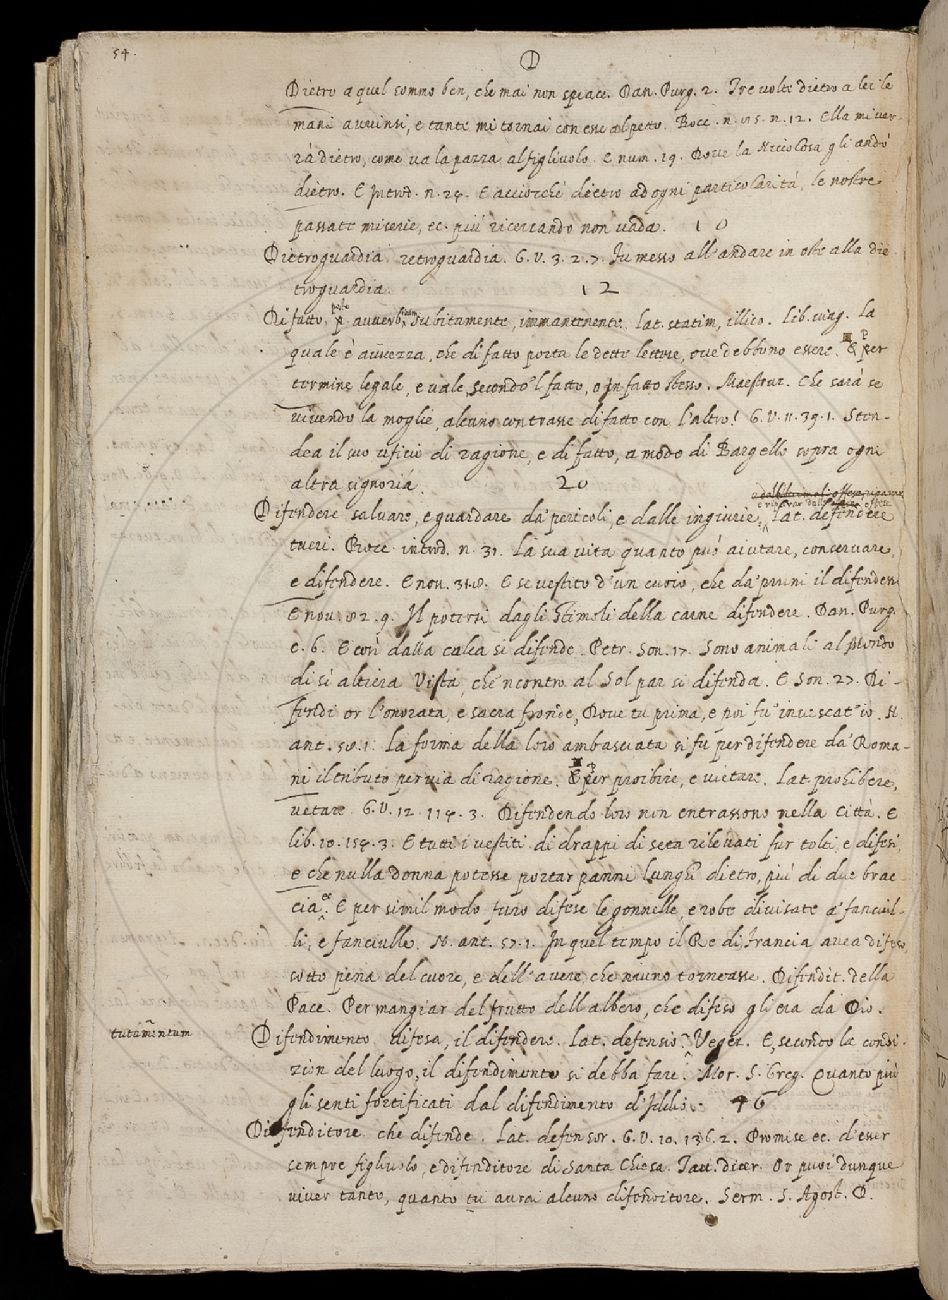 54.
D
Dietro a quel sommo ben, che mai non spiace. Dan. Purg. 2. Tre volte dietro a lei le
mani avvinsi, e tante mi tornai con esse al petto. Bocc. n. 15. n. 12. Ella mi ver-
rà dietro, come va la pazza al figliuolo. E num. 19. Dove la Niccolosa gli andò
dietro. E Introd. n. 24. E acciocchè dietro ad ogni particolarità, le nostre
passate miserie, ec. più ricercando non vada. 10
Dietroguardia. retroguardia. G. V. 3. 2. 7. Fu messo all'andare in oste alla die
troguardia. 12
Di fatto, posto p avverb. subitamente, immantinente. lat. statim, illico. Lib. viag. La
quale è avvezza, che di fatto porta le dette lettere, ove debbono essere. & per
termine legale, e vale, secondo 'l fatto, o in fatto stesso. Maestruz. Che sarà se
vivendo la moglie, alcuno contrasse di fatto con l'altro? G. V. 11. 39. 1. Sten-
dea il suo uficio di ragione, e di fatto, a modo di Bargello sopra ogni
altra signoria. 20
e riparar dalle offese
Difendere salvare, e guardare da' pericoli, e dalle ingiurie, Lat. defendere
tueri. Bocc. introd. n. 31. La sua vita quanto può aiutare, conservare,
e difendere. E nov. 31. E se vestito d'un cuoio, che da' pruni il difenden
E nov. 82. 9. Il potersi dagli stimoli della carne difendere. Dan. Purg.
c. 6. E così dalla calca si difende. Petr. Son. 17. Sono animali al Mondo
di sì altiera Vista, che 'ncontro al Sol pur si difenda. E Son. 27. Di-
fendi or l'onorata, e sacra fronde, Dove tu prima, e poi fu' invescat' io. N.
ant. 50. 1. La forma della loro ambasciata si fu per difendere da' Roma-
ni il tributo per via di ragione. & per proibire, e vietare. Lat. prohibere,
vetare. G. V. 12. 114. 3. Difendendo loro non entrassono nella Città. E
lib. 10. 154. 3. E tutti i vestiti di drappi di seta rilevati fur tolti, e difesi,
e che nulla donna potesse portar panni lunghi dietro, più di due brac-
cia, ec. E per simil modo furo difese le gonnelle, e robe divisate a' fanciul-
li, e fanciulle. N. ant. 57. 1. In quel tempo il Re di Francia avea difeso,
sotto pena del cuore, e dell'avere che niuno torneasse. Difendit. della
Pace. Per mangiar del frutto dell'albero, che difeso gli era da Dio.
tutamentum
Difendimento difesa, il difendere. Lat. defensio. Veget. E, secondo la condi-
zion del luogo, il difendimento si debba fare. Mor. S. Greg. Quanto più
gli senti fortificati dal difendimento d'Iddio. 46
Difenditore che difende. Lat. defensor. G. V. 10. 136. 2. Promise ec. d'esser
sempre figliuolo, e difenditore di santa Chiesa. Tav. dicer. Or puoi dunque
viver tanto, quanto tu avrai alcuno difenditore. Serm. S. Agost. D.